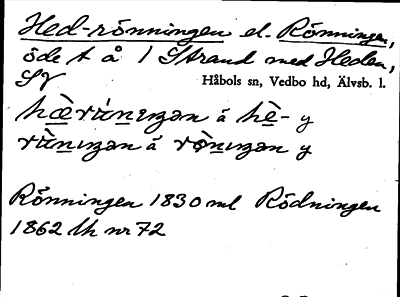 Hed-rönningen el. Rönningen,
öde t å 1 Strand med Heden,
SV Håbols sn, Vedbo hd, Älvsb. l.
hæ̀rùnıŋən å hè- y
rùnıŋən å rǫ̀nıŋən y
Rönningen 1830 ml Rödningen
1862 lh nr 72